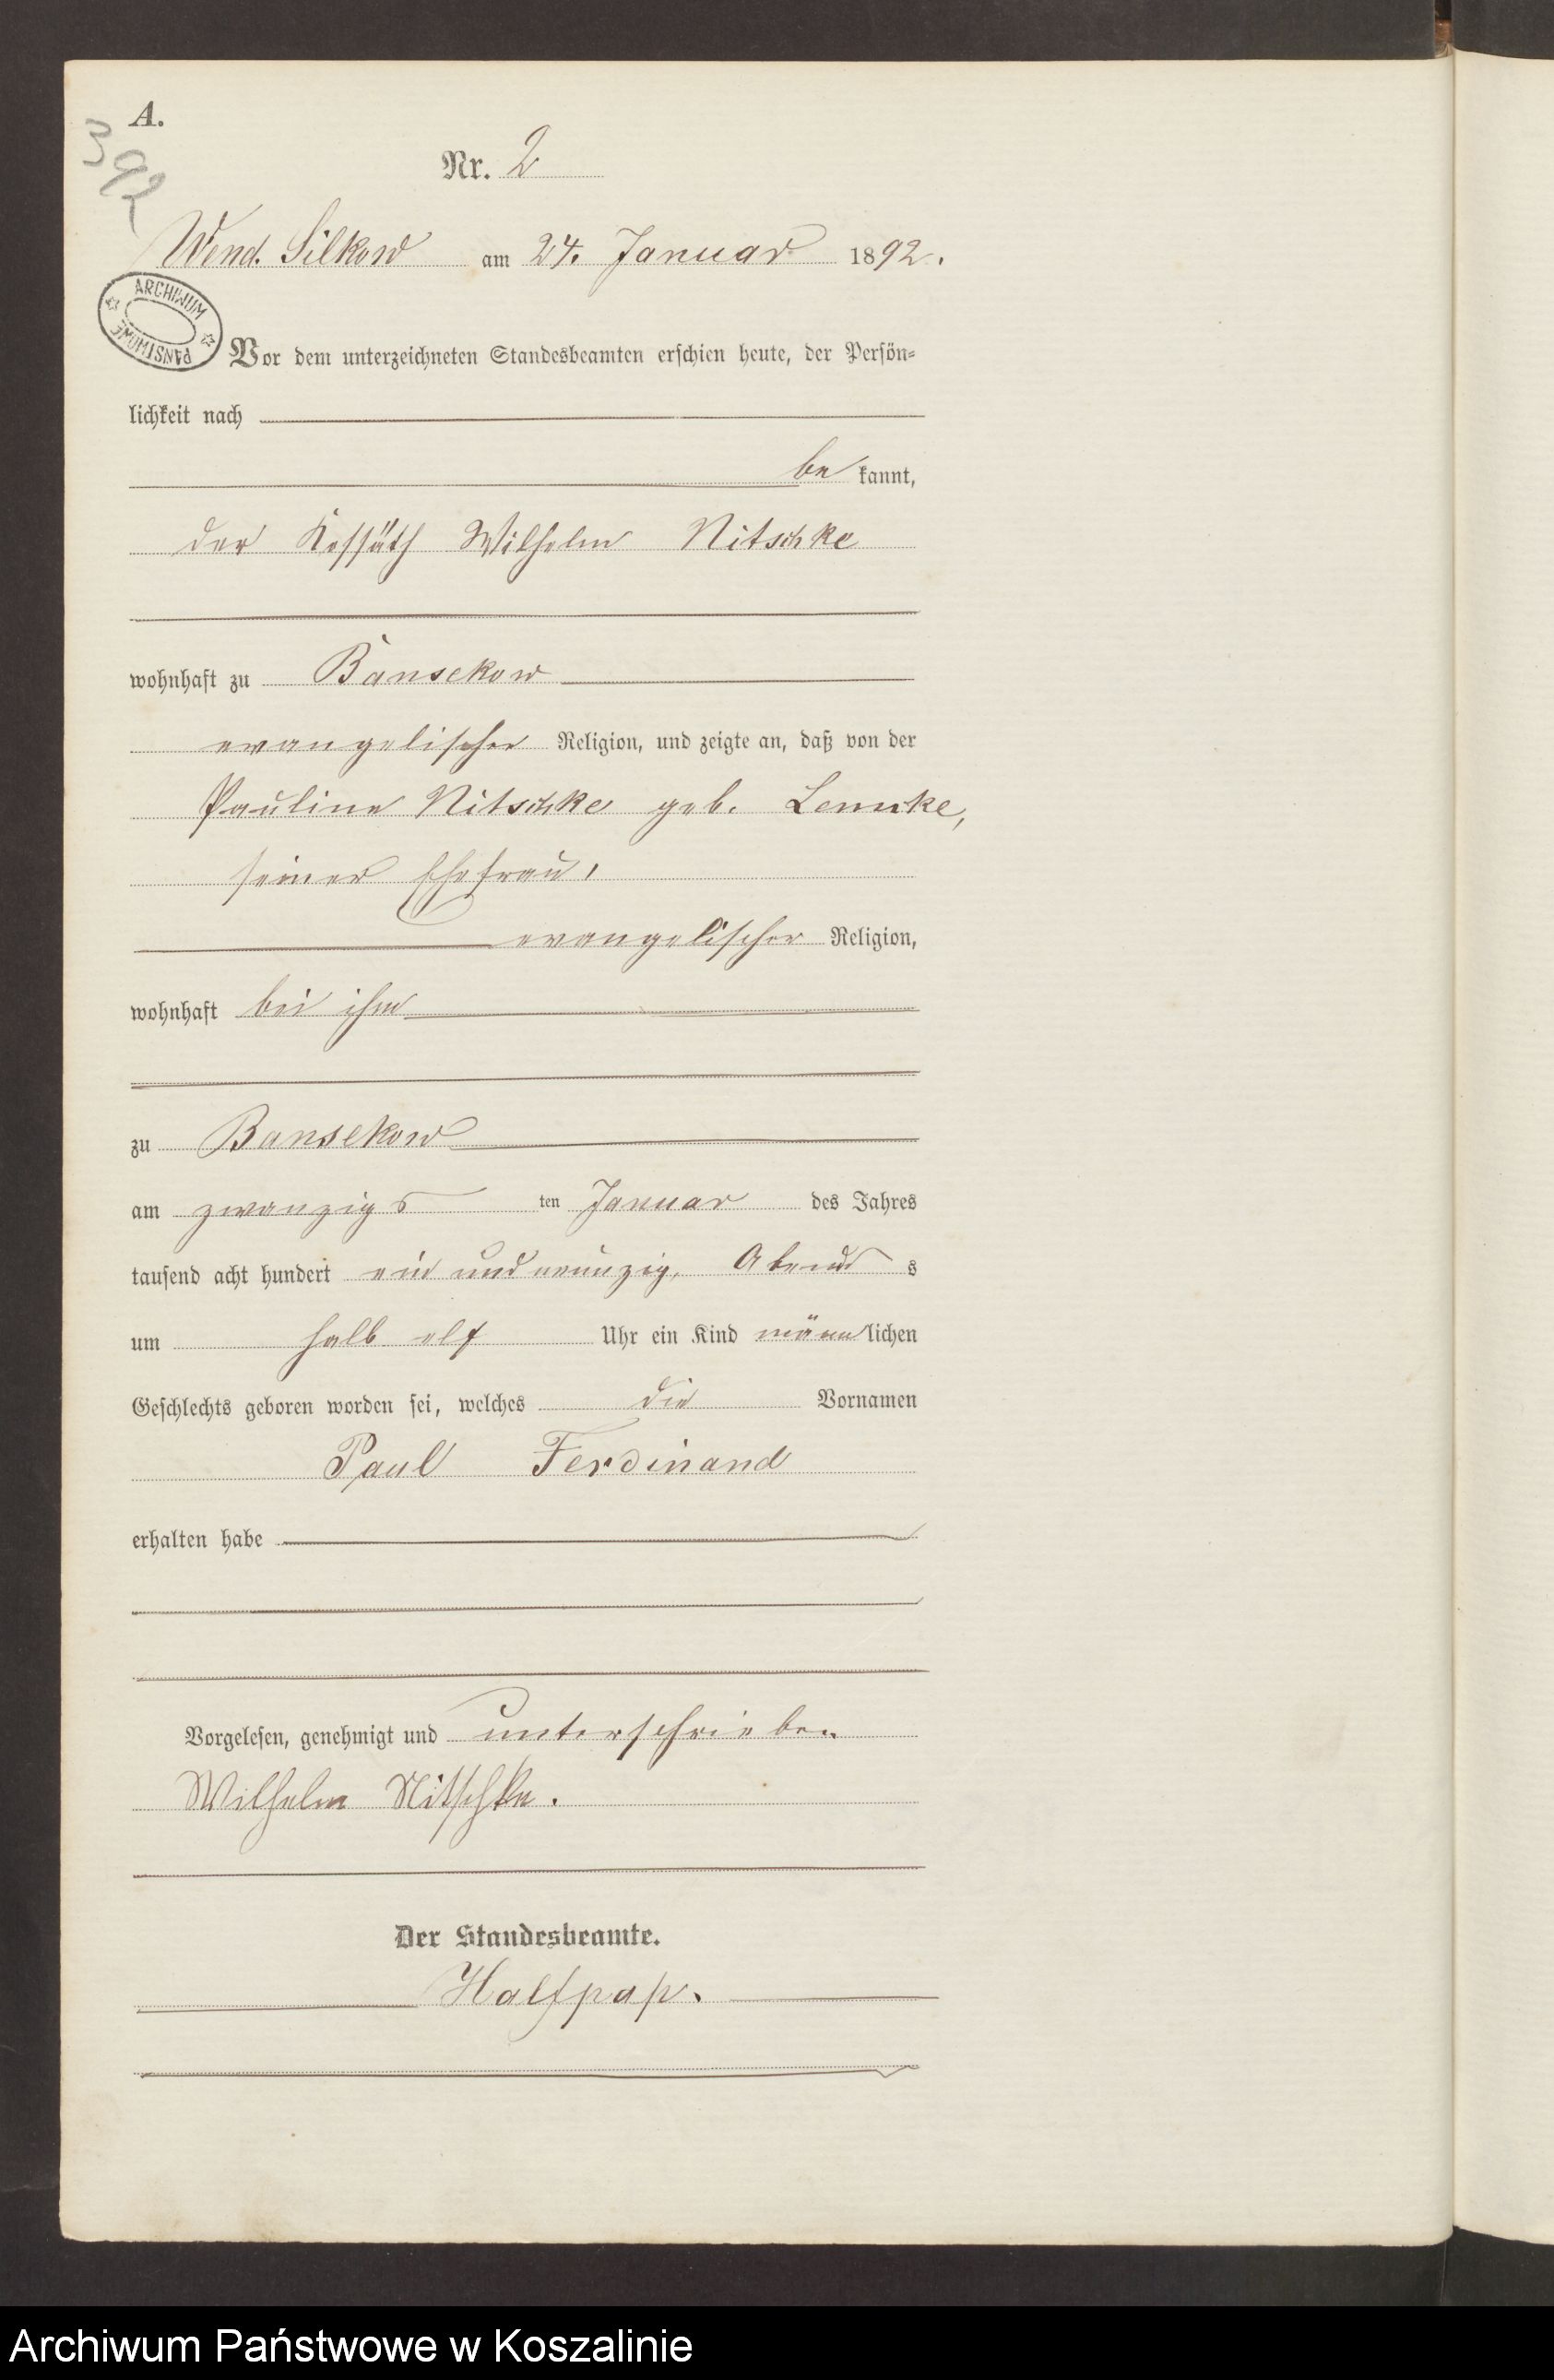 A.
392
Nr. 2
Wend. Silkow am 24. Januar 1892.
ARCHIWUM
PAŃSTWOWE
Vor dem unterzeichneten Standesbeamten erschien heute, der Persön-
lichkeit nach
be kannt,
der Kossäth Wilhelm Nitschke
wohnhaft zu Bansekow
evangelischer Religion, und zeigte an, daß von der
Pauline Nitschke geb. Lemcke,
seiner Ehefrau,
evangelischer Religion,
wohnhaft bei ihm
zu Bansekow
am zwanzigs ten Januar des Jahres
tausend acht hundert ein und neunzig, Abend s
um halb elf Uhr ein Kind männ lichen
Geschlechts geboren worden sei, welches die Vornamen
Paul Ferdinand
erhalten habe
Vorgelesen, genehmigt und unterschrieben
Wilhelm Nitschke.
Der Standesbeamte.
Halfpap.
Archiwum Państwowe w Koszalinie